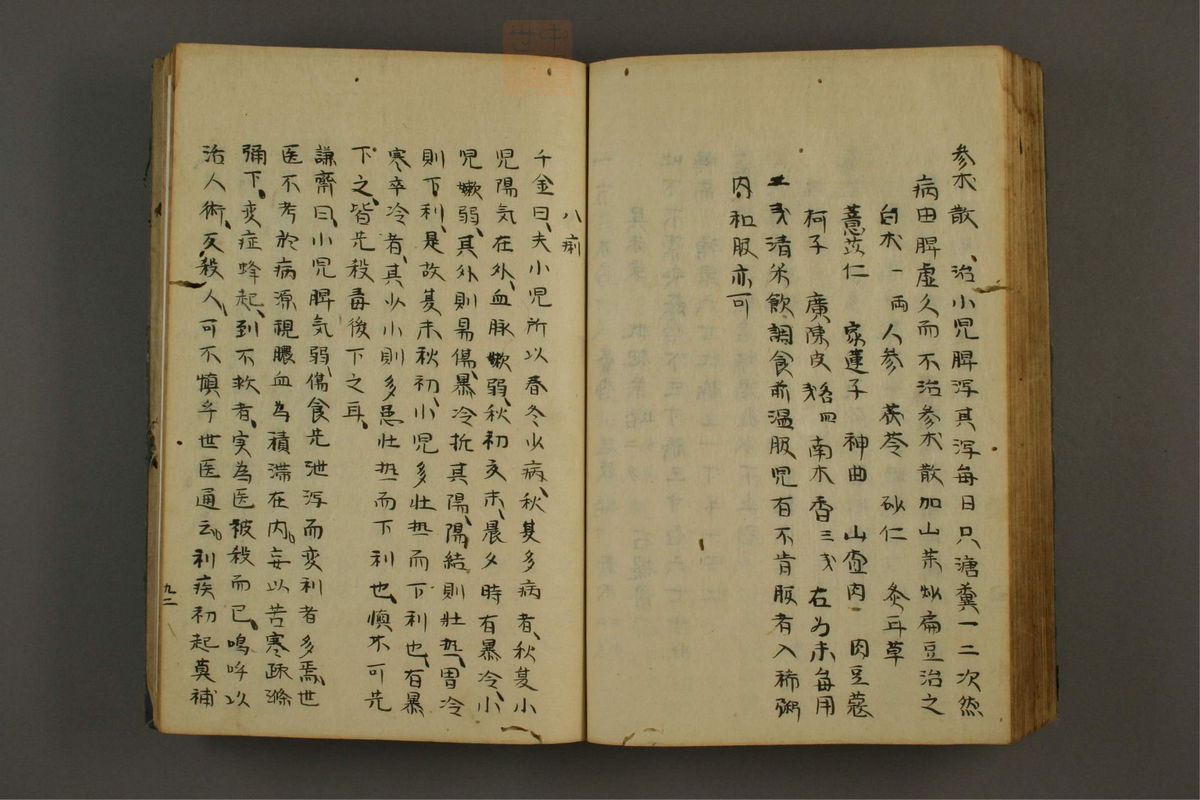 参朮散、治小児脾泻其泻毎日只溏糞一二次然
病由脾虚久而不治参朮散加山薬炒扁豆治之
白朮一両 人参 茯苓 砂仁 炙甘草
薏苡仁 家蓮子 神曲 山査肉 肉豆蔻
柯子 廣陳皮 各四戋 南木香三戋 右为末毎用
二戋清米飲調食前温服児有不肯服者入稀粥
内和服亦可
八痢
千金曰、夫小児所以春冬少病、秋夏多病者、秋夏小
児陽気在外、血脉嫩弱、秋初夏末、晨夕時有暴冷、小
児嫩弱、其外則易傷、暴冷折其陽、陽結則壮热、胃冷
則下利、是故夏末秋初、小児多壮热而下利也、有暴
寒卒冷者、其少小則多患壮热而下利也、慎不可先
下之、皆先殺毒後下之耳、
謙齋曰、小児脾気弱、傷食先泄泻而変利者多焉、世
医不考於病源視膿血為積滞在内。妄以苦寒疎滌
彌下、変症蜂起、到不救者、実為医被殺而已、嗚呼以
治人術、反殺人、可不慎乎世医通云。利疾初起莫補
九二